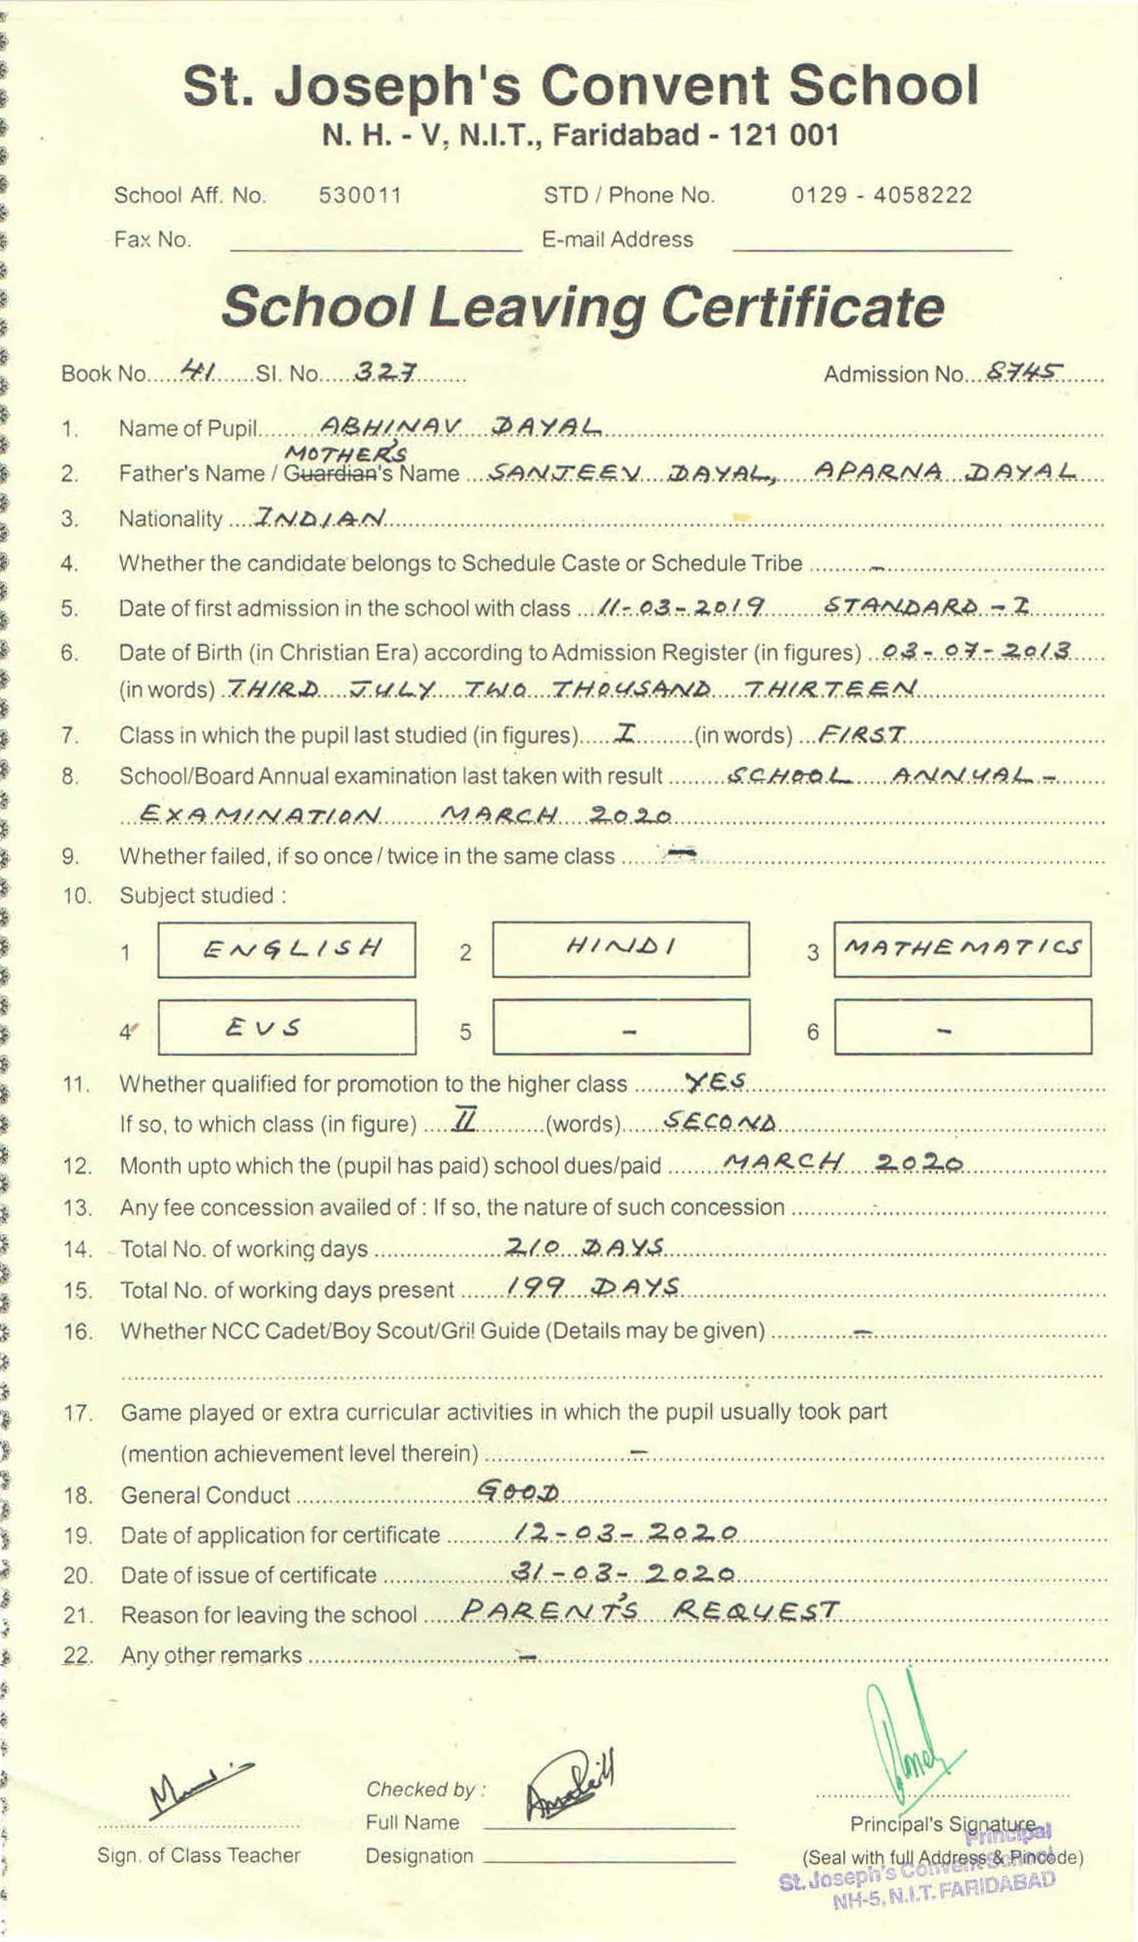 St. Joseph's Convent School
N. H. - V, N.I.T., Faridabad - 121 001
School Aff. No. 530011 STD / Phone No. 0129 - 4058222
Fax No. E-mail Address
School Leaving Certificate
Book No. 41 Sl. No. 327 Admission No. 8745
1. Name of Pupil ABHINAV DAYAL
MOTHER'S
2. Father's Name / Guardian's Name SANJEEV DAYAL, APARNA DAYAL
3. Nationality INDIAN
4. Whether the candidate belongs to Schedule Caste or Schedule Tribe -
5. Date of first admission in the school with class 11-03-2019 STANDARD - I
6. Date of Birth (in Christian Era) according to Admission Register (in figures) 03-07-2013
(in words) THIRD JULY TWO THOUSAND THIRTEEN
7. Class in which the pupil last studied (in figures) I (in words) FIRST
8. School/Board Annual examination last taken with result SCHOOL ANNUAL -
EXAMINATION MARCH 2020
9. Whether failed, if so once / twice in the same class -
10. Subject studied :
1 ENGLISH 2 HINDI 3 MATHEMATICS
4 EVS 5 - 6 -
11. Whether qualified for promotion to the higher class YES
If so, to which class (in figure) II (words) SECOND
12. Month upto which the (pupil has paid) school dues/paid MARCH 2020
13. Any fee concession availed of : If so, the nature of such concession
14. Total No. of working days 210 DAYS
15. Total No. of working days present 199 DAYS
16. Whether NCC Cadet/Boy Scout/Gril Guide (Details may be given) -
17. Game played or extra curricular activities in which the pupil usually took part
(mention achievement level therein) -
18. General Conduct GOOD
19. Date of application for certificate 12-03-2020
20. Date of issue of certificate 31-03-2020
21. Reason for leaving the school PARENT'S REQUEST
22. Any other remarks -
Checked by :
Full Name
Principal's Signature
Principal
Sign. of Class Teacher Designation (Seal with full Address & Pincode)
St. Joseph's Convent School
NH-5, N.I.T. FARIDABAD